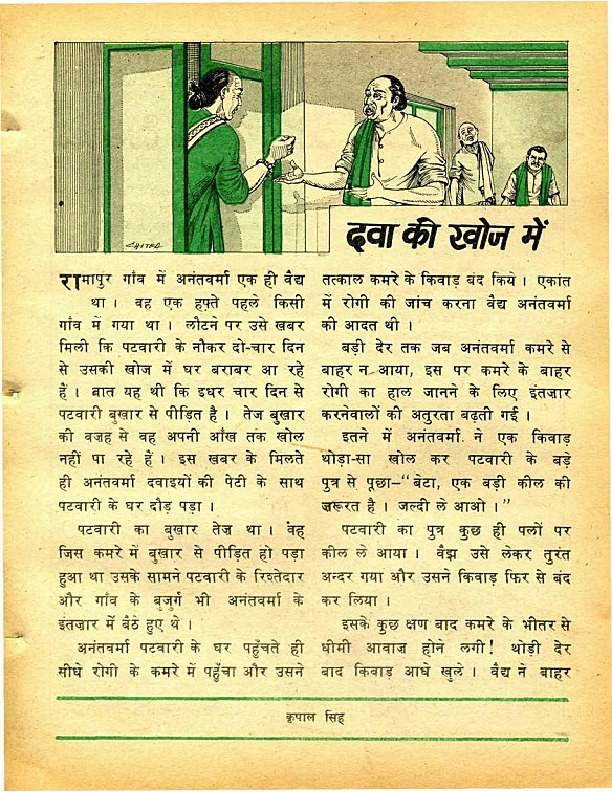 CHITRA
दवा की खोज में
रामापुर गाँव में अनंतवर्मा एक ही वैद्य
था । वह एक हफ़्ते पहले किसी
गाँव में गया था । लौटने पर उसे खबर
मिली कि पटवारी के नौकर दो-चार दिन
से उसकी खोज में घर बराबर आ रहे
हैं । बात यह थी कि इधर चार दिन से
पटवारी बुखार से पीड़ित है । तेज बुखार
की वजह से वह अपनी आँख तक खोल
नहीं पा रहे हैं । इस खबर के मिलते
ही अनंतवर्मा दवाइयों की पेटी के साथ
पटवारी के घर दौड़ पड़ा ।
पटवारी का बुखार तेज था । वह
जिस कमरे में बुखार से पीड़ित हो पड़ा
हुआ था उसके सामने पटवारी के रिश्तेदार
और गाँव के बुजुर्ग भी अनंतवर्मा के
इंतज़ार में बैठे हुए थे ।
अनंतवर्मा पटवारी के घर पहुँचते ही
सीधे रोगी के कमरे में पहुँचा और उसने
तत्काल कमरे के किवाड़ बंद किये । एकांत
में रोगी की जांच करना वैद्य अनंतवर्मा
की आदत थी ।
बड़ी देर तक जब अनंतवर्मा कमरे से
बाहर न आया, इस पर कमरे के बाहर
रोगी का हाल जानने के लिए इंतज़ार
करनेवालों की अतुरता बढ़ती गई ।
इतने में अनंतवर्मा ने एक किवाड़
थोड़ा-सा खोल कर पटवारी के बड़े
पुत्र से पूछा–“बेटा, एक बड़ी कील की
जरूरत है । जल्दी ले आओ ।”
पटवारी का पुत्र कुछ ही पलों पर
कील ले आया । वैद्य उसे लेकर तुरंत
अन्दर गया और उसने किवाड़ फिर से बंद
कर लिया ।
इसके कुछ क्षण बाद कमरे के भीतर से
धीमी आवाज़ होने लगी! थोड़ी देर
बाद किवाड़ आधे खुले । वैद्य ने बाहर
कृपाल सिंह